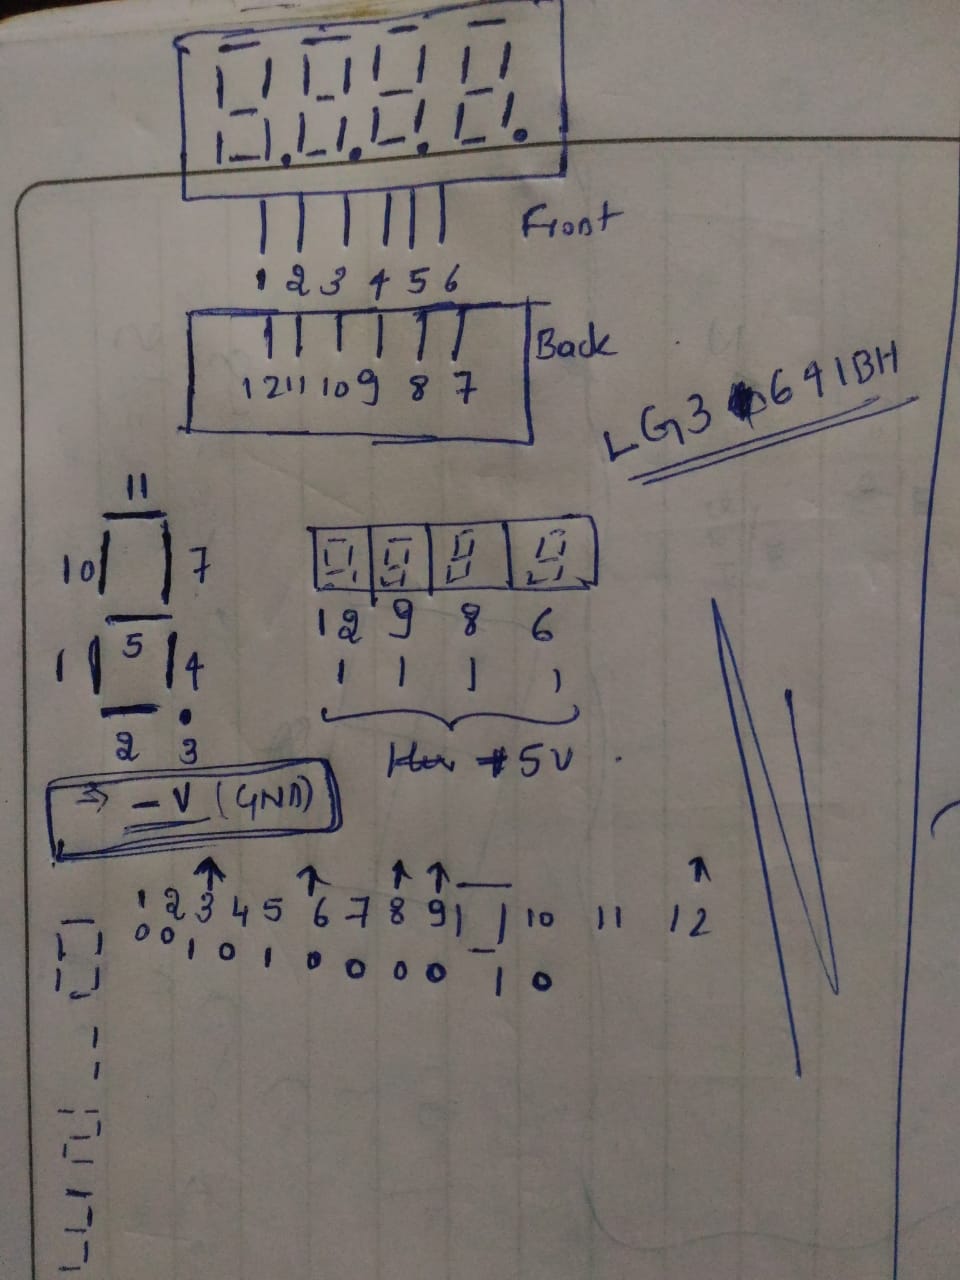 Front
1 2 3 4 5 6
Back
12 11 10 9 8 7
LG3 641BH
11
10 7
5
1 4
2 3
12 9 8 6
1 1 1 1
5V
→ -V (GND)
1 2 3 4 5 6 7 8 9 10 11 12
0 0 1 0 1 0 0 0 0 1 0